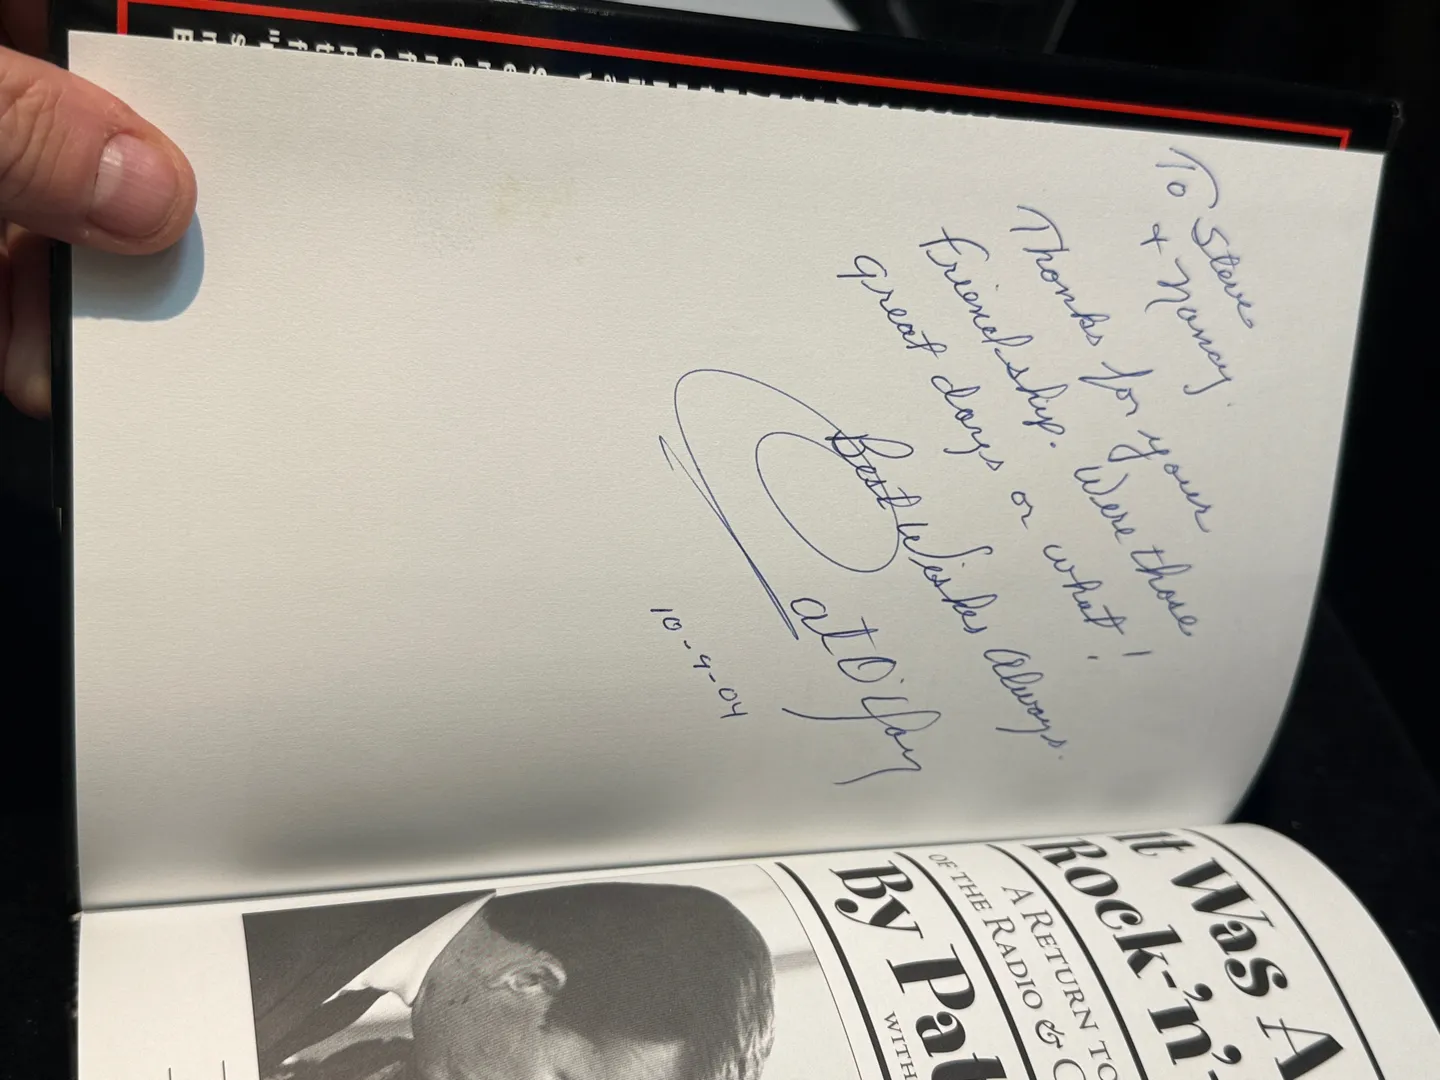 To Steve
+ Nancy
Thanks for your
Friendship. Were those
great days or what!
Best Wishes Always.
Pat O'Day
10-9-04
It Was A
Rock-'n'-
A RETURN TO
OF THE RADIO & C
By Pat
WITH